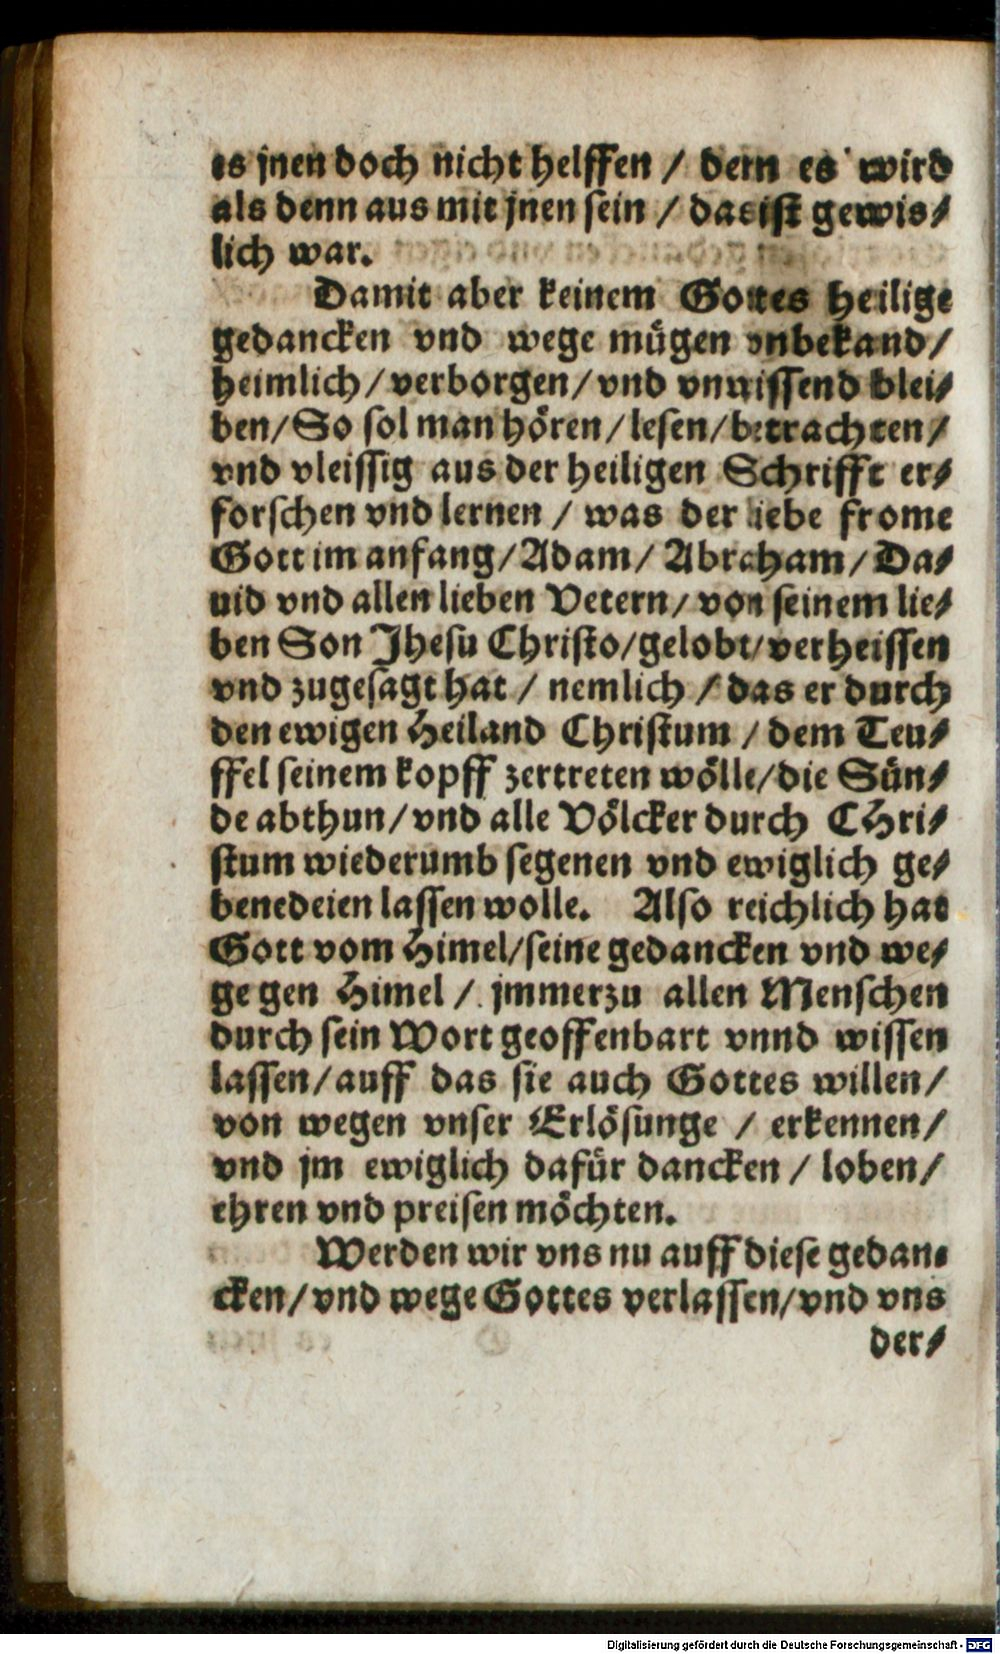 es jnen doch nicht helffen / dern es wird
als denn aus mit jnen sein / das ist gewis⸗
lich war.
Damit aber keinem Gottes heilige
gedancken vnd wege mügen vnbekand/
heimlich/verborgen/vnd vnwissend blei⸗
ben/So sol man hören/lesen/betrachten/
vnd vleissig aus der heiligen Schrifft er⸗
forschen vnd lernen / was der liebe frome
Gott im anfang/Adam/Abraham/Da⸗
uid vnd allen lieben Vetern/von seinem lie⸗
ben Son Jhesu Christo/gelobt/verheissen
vnd zugesagt hat / nemlich / das er durch
den ewigen Heiland Christum / dem Teu⸗
ffel seinem kopff zertreten wölle/die Sün⸗
de abthun/vnd alle Völcker durch CHri⸗
stum wiederumb segenen vnd ewiglich ge⸗
benedeien lassen wolle. Also reichlich hat
Gott vom Himel/seine gedancken vnd we⸗
ge gen Himel / jmmerzu allen Menschen
durch sein Wort geoffenbart vnnd wissen
lassen/auff das sie auch Gottes willen/
von wegen vnser Erlösunge / erkennen/
vnd jm ewiglich dafür dancken / loben/
ehren vnd preisen möchten.
Werden wir vns nu auff diese gedan⸗
cken/vnd wege Gottes verlassen/vnd vns
der⸗
Digitalisierung gefördert durch die Deutsche Forschungsgemeinschaft - DFG